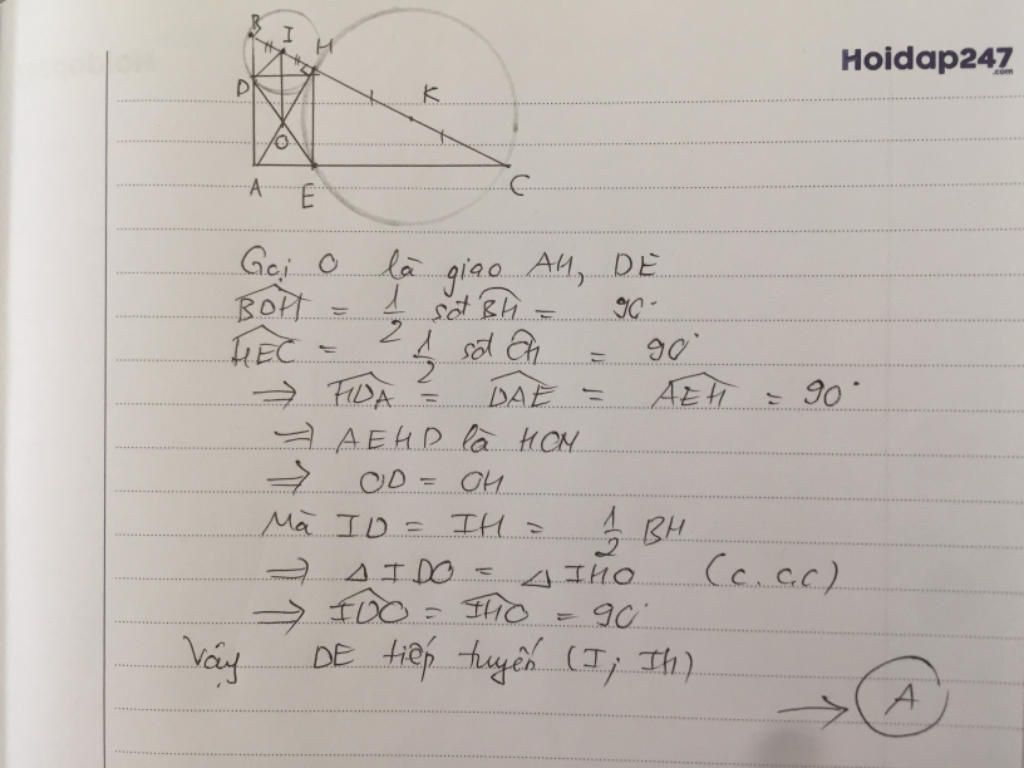 Hoidap247
.com
B I H
D K
O
A E C
Gọi O là giao AH, DE
BDH = 1/2 sđ BH = 90°
HEC = 1/2 sđ CH = 90°
⇒ HDA = DAE = AEH = 90°
⇒ AEHD là HCN
⇒ OD = OH
Mà ID = IH = 1/2 BH
⇒ △IDO = △IHO (c.c.c)
⇒ IDO = IHO = 90°
Vậy DE tiếp tuyến (I; IH)
→ A